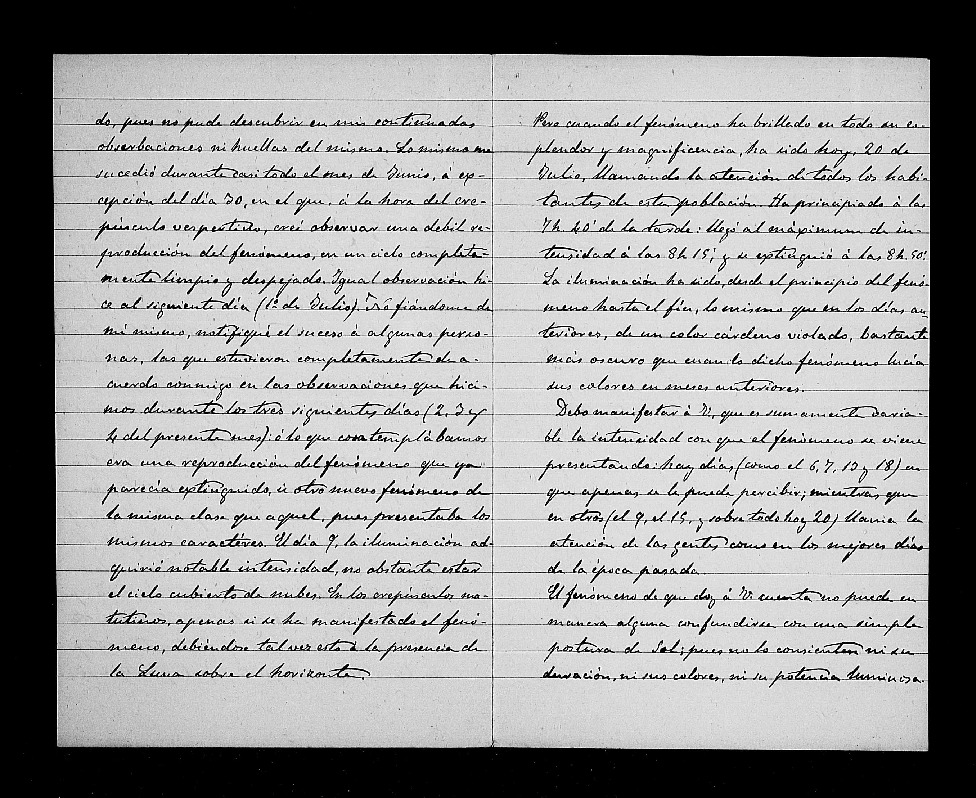 do, pues no pude descubrir en mis continuadas
observaciones ni huellas del mismo. Lo mismo me
sucedió durante casi todo el mes de Junio, á ex-
cepción del día 30, en el que, á la hora del cre-
púsculo vespertino, creí observar una debil re-
producción del fenómeno, en un cielo completa-
mente limpio y despejado. Igual observación hi-
ce al siguiente día (1º de Julio). No fiándome de
mi mismo, notifiqué el suceso á algunas perso-
nas, las que estuvieron completamente de a-
cuerdo conmigo en las observaciones que hici-
mos durante los tres siguientes días (2, 3 y
4 del presente mes): ó lo que contemplábamos
era una reproducción del fenómeno que ya
parecía extinguido, ú otro nuevo fenómeno de
la misma clase que aquel, pues presentaba los
mismos caractéres. El día 9, la iluminación ad-
quirió notable intensidad, no obstante estar
el cielo cubierto de nubes. En los crepúsculos ma-
tutinos, apenas si se ha manifestado el fenó-
meno, debiéndose tal vez esto á la presencia de
la Luna sobre el horizonte.
Pero cuando el fenómeno ha brillado en todo su es-
plendor y magnificencia, ha sido hoy, 20 de
Julio, llamando la atención de todos los habi-
tantes de esta población. Ha principiado á las
7h 40' de la tarde: llegó al máximum de in-
tensidad á las 8h 15', y se extinguió á las 8h. 50'.
La iluminación ha sido, desde el principio del fenó-
meno hasta el fín, lo mismo que en los días an-
teriores, de un color cárdeno violado, bastante
más oscuro que cuando dicho fenómeno lucía
sus colores en meses anteriores.
Debo manifestar á V., que es sumamente varia-
ble la intensidad con que el fenómeno se viene
presentando: hay días (como el 6, 7, 13 y 18) en
que apenas se le puede percibir; mientras que
en otros (el 9, el 15, y sobre todo hoy 20) llama la
atención de las gentes como en los mejores días
de la época pasada.
El fenómeno de que doy á V. cuenta no puede en
manera alguna confundirse con una simple
postura de Sol; pues no lo consienten ni su
duración, ni sus colores, ni su potencia luminosa.